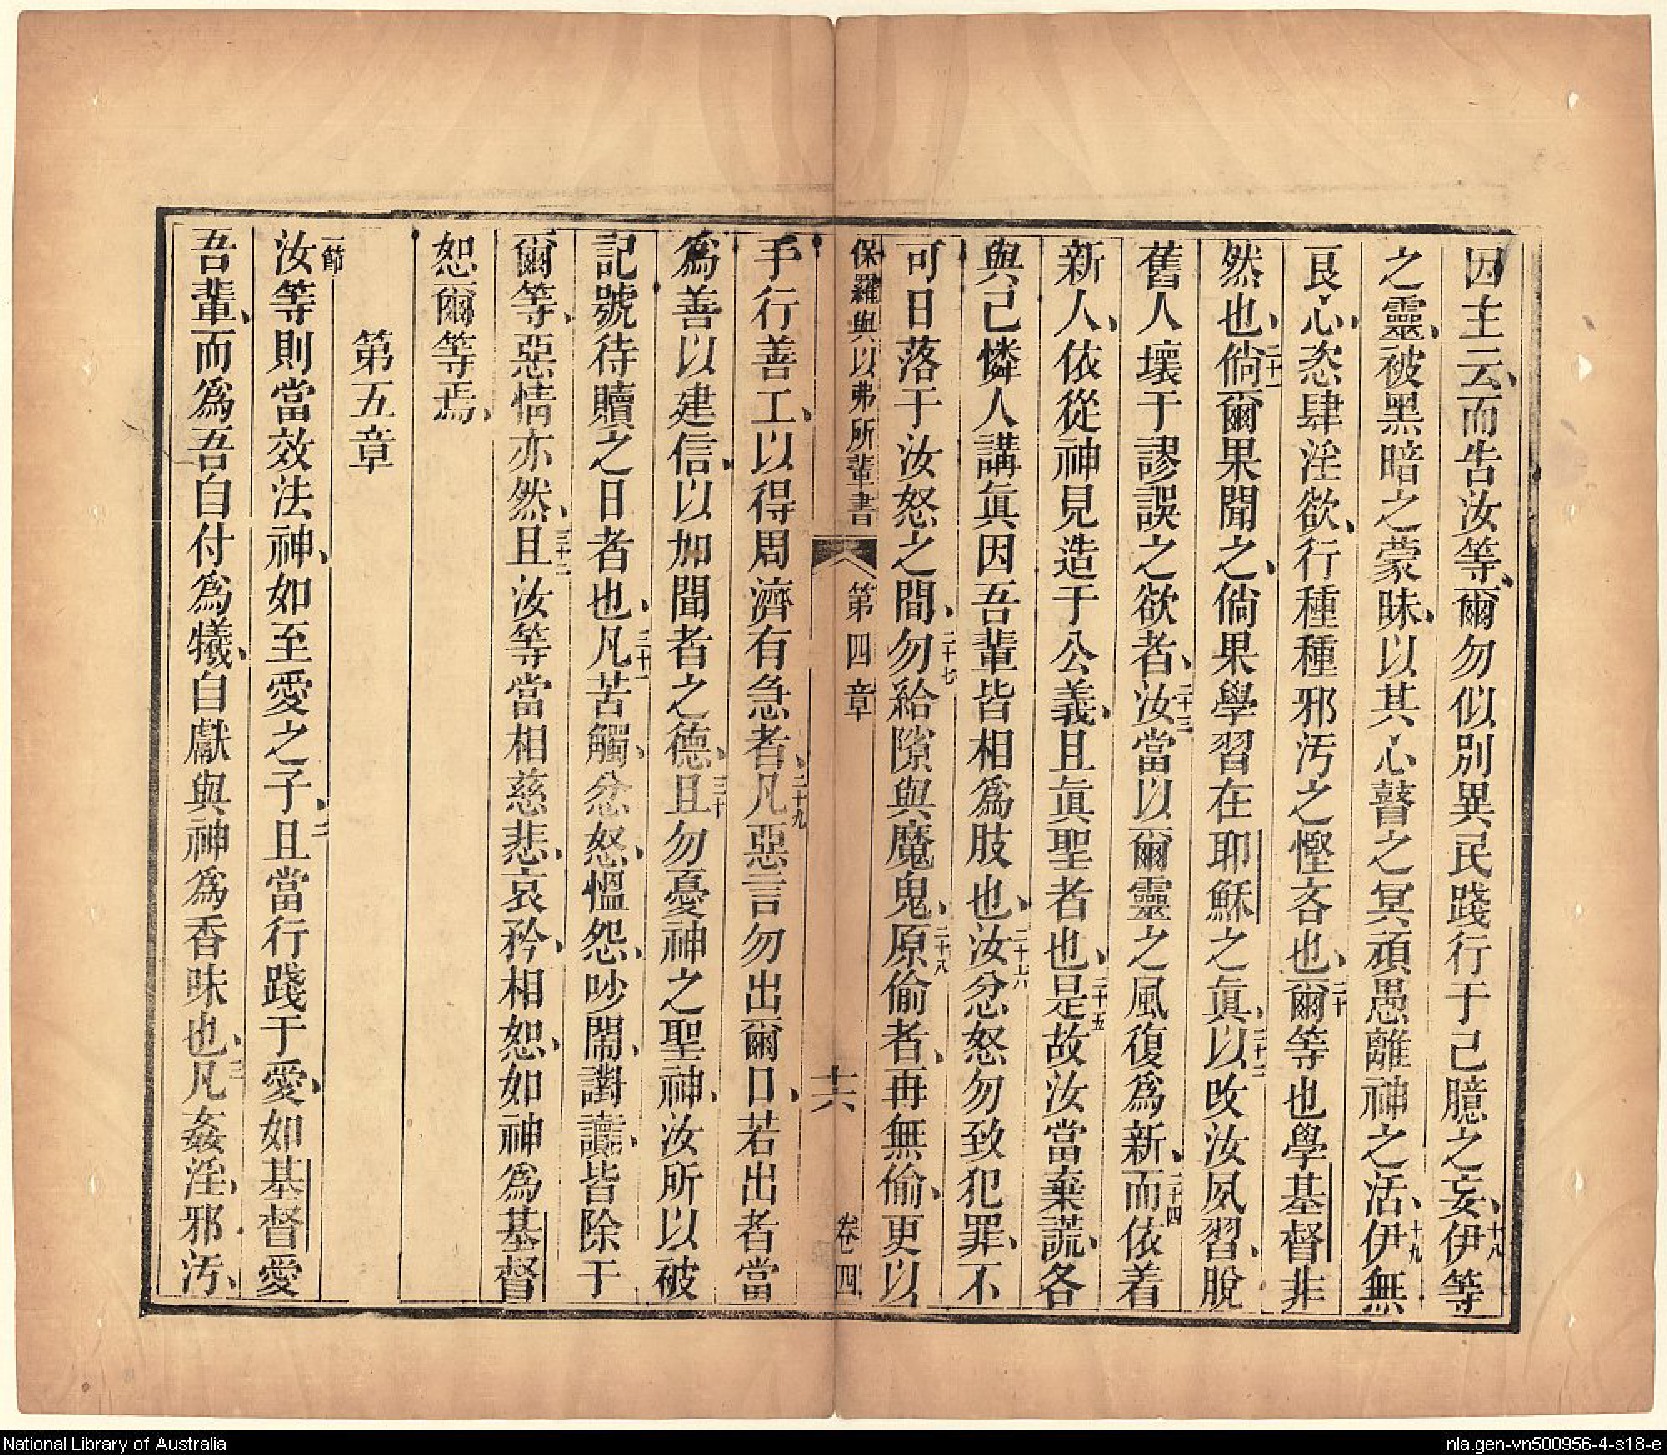 因主云、而告汝等、爾勿似別異民踐行于己臆之妄、十八伊等
之靈、被黑暗之蒙昧、以其心瞽之冥頑愚離神之活、十九伊無
良心、恣肆淫欲、行種種邪汚之慳吝也、二十爾等也學基督非
然也、二十一倘爾果聞之、倘果學習在耶穌之眞、二十二以改汝夙習、脫
舊人壞于謬誤之欲者、二十三汝當以爾靈之風復爲新、二十四而依着
新人、依從神見造于公義、且眞聖者也、二十五是故汝當棄謊、各
與己憐人講眞因吾輩皆相爲肢也、二十六汝忿怒勿致犯罪、不
可日落于汝怒之間、二十七勿給隙與魔鬼、二十八原偷者、再無偷、更以
保羅與以弗所輩書 第四章 十六 卷四
手行善工、以得周濟有急者、二十九凡惡言勿出爾口、若出者當
爲善以建信、以加聞者之德、三十且勿憂神之聖神、汝所以被
記號待贖之日者也、三十一凡苦觸、忿怒、慍怨、吵鬧、讟、皆除于
爾等、惡情亦然、三十二且汝等當相慈悲、哀矜、相恕、如神爲基督
恕爾等焉、
第五章
一節汝等則當效法神、如至愛之子、二且當行踐于愛、如基督愛
吾輩、而爲吾自付爲犧、自獻與神爲香味也、三凡姦淫、邪汚、